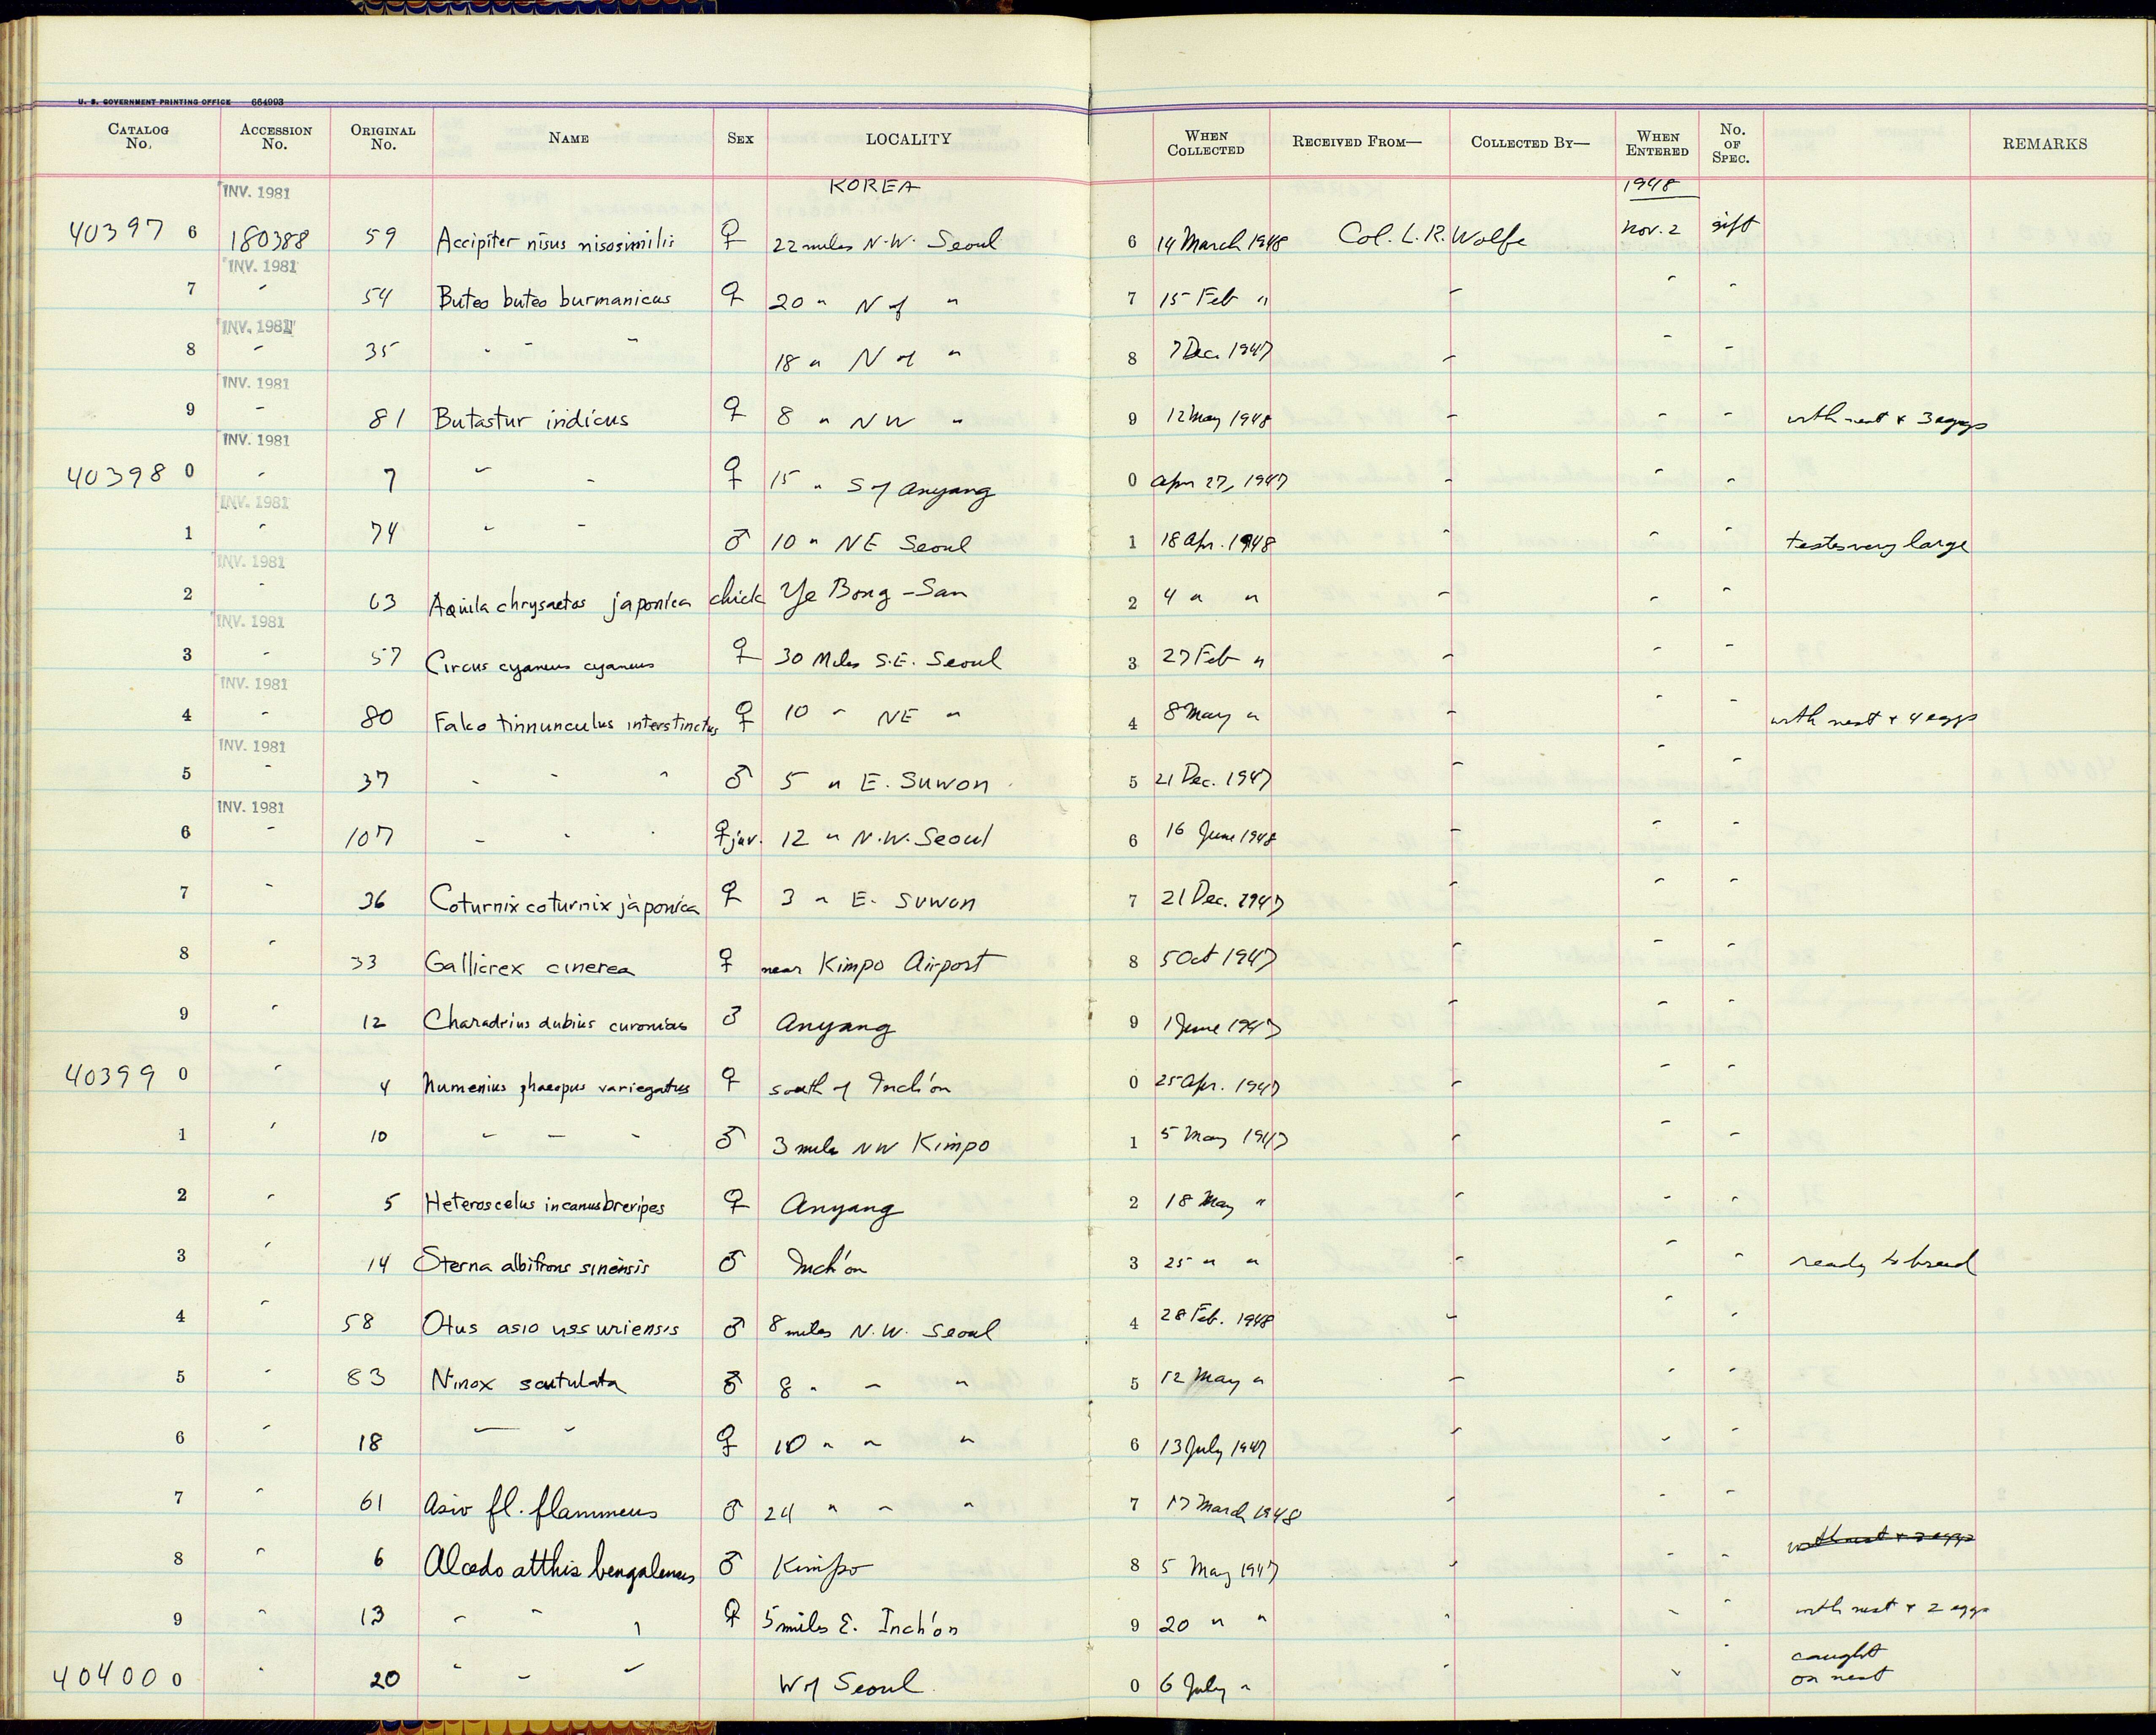 U. S. GOVERNMENT PRINTING OFFICE 664993
CATALOG No. ACCESSION No. ORIGINAL No. NAME SEX LOCALITY WHEN COLLECTED RECEIVED FROM— COLLECTED BY— WHEN ENTERED No. OF SPEC. REMARKS
INV. 1981 KOREA 1948
40397 6 180388 59 Accipiter nisus nisosimilis ♀ 22 miles N.W. Seoul 6 14 March 1948 Col. L.R. Wolfe Nov. 2 gift
INV. 1981
7 " 54 Buteo buteo burmanicus ♀ 20 " N of " 7 15 Feb " " " "
INV. 1981
8 " 35 " " " 18 " N of " 8 7 Dec. 1947 " " "
INV. 1981
9 " 81 Butastur indicus ♀ 8 " NW " 9 12 May 1948 " " " with nest & 3 eggs
INV. 1981
40398 0 " 7 " " ♀ 15 " S of Anyang 0 Apr 27, 1947 " " "
INV. 1981
1 " 74 " " ♂ 10 " NE Seoul 1 18 Apr. 1948 " " " testes very large
INV. 1981
2 " 63 Aquila chrysaetos japonica chick Ye Bong-San 2 4 " " " " "
INV. 1981
3 " 57 Circus cyaneus cyaneus ♀ 30 Miles S.E. Seoul 3 27 Feb " " " "
INV. 1981
4 " 80 Falco tinnunculus interstinctus ♀ 10 " NE " 4 8 May " " " " with nest & 4 eggs
INV. 1981
5 " 37 " " " ♂ 5 " E. Suwon 5 21 Dec. 1947 " " "
INV. 1981
6 " 107 " " " ♀ juv. 12 " N.W. Seoul 6 16 June 1948 " " "
7 " 36 Coturnix coturnix japonica ♀ 3 " E. Suwon 7 21 Dec. 1947 " " "
8 " 33 Gallicrex cinerea ♀ near Kimpo Airport 8 5 Oct 1947 " " "
9 " 12 Charadrius dubius curonicus ♂ Anyang 9 1 June 1947 " " "
40399 0 " 4 Numenius phaeopus variegatus ♀ south of Inch'on 0 25 Apr. 1947 " " "
1 " 10 " " " ♂ 3 mile NW Kimpo 1 5 May 1947 " " "
2 " 5 Heteroscelus incanus brevipes ♀ Anyang 2 18 May " " " "
3 " 14 Sterna albifrons sinensis ♂ Inch'on 3 25 " " " " " ready to breed
4 " 58 Otus asio ussuriensis ♂ 8 miles N.W. Seoul 4 28 Feb. 1948 " " "
5 " 83 Ninox scutulata ♂ 8 " " " 5 12 May " " " "
6 " 18 " " ♀ 10 " " " 6 13 July 1947 " " "
7 " 61 Asio fl. flammeus ♂ 24 " " " 7 17 March 1948 " " "
8 " 6 Alcedo atthis bengalensis ♂ Kimpo 8 5 May 1947 " " " with nest & 2 eggs
9 " 13 " " " ♀ 5 miles E. Inch'on 9 20 " " " " " with nest & 2 eggs
40400 0 " 20 " " " W of Seoul 0 6 July " " " " caught
on nest